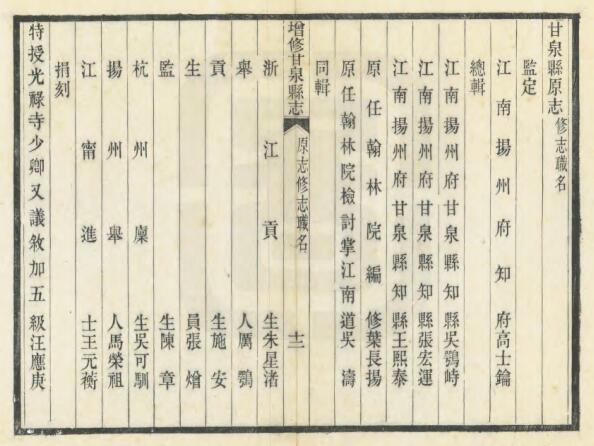 甘泉縣原志修志職名
監定
江南揚州府知府高士鑰
總輯
江南揚州府甘泉縣知縣吳鶚峙
江南揚州府甘泉縣知縣張宏運
江南揚州府甘泉縣知縣王熙泰
原任翰林院編修葉長揚
原任翰林院檢討掌江南道吳濤
同輯
原志修志職名 十二
增修甘泉縣志
浙江貢生朱星渚
舉人厲鶚
貢生施安
生員張熷
監生陳章
杭州廩生吳可馴
揚州舉人馬榮祖
江甯進士王元蘅
捐刻
特授光祿寺少卿又議敘加五級汪應庚